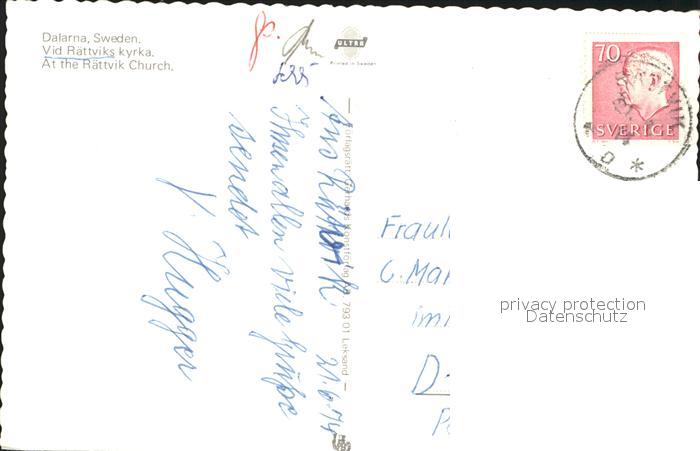 Dalarna, Sweden.
Vid Rättviks kyrka.
At the Rättvik Church.
ULTRA
Printed in Sweden
70
SVERIGE
Aus Rättvik 21.6.74
Ihnen allen viele Grüße
sendet
V. Hugger
793 01 Leksand
Fraul
G. Mai
im
D-
privacy protection
Datenschutz